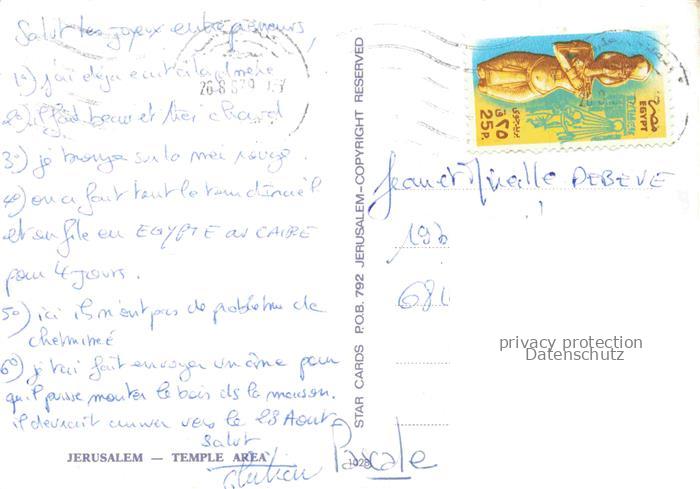 Salut les joyeux entrepreneurs,
1°) j'ai déjà écrit à la
2°) il fait beau et très chaud
3°) je bronze sur la mer rouge.
4°) on a fait tout le tour d'Israël
et on file en EGYPTE au CAIRE
pour 4 jours.
5°) ici ils n'ont pas de problème de
cheminée
6°) je t'ai fait envoyer un âne pour
qu'il puisse monter le bois ds la maison.
il devrait arriver vers le 28 Août
Salut
Pascale
JERUSALEM — TEMPLE AREA
1028
STAR CARDS P.O.B. 792 JERUSALEM-COPYRIGHT RESERVED
EGYPT
25P
Jean et Mireille DEBEVE
privacy protection
Datenschutz